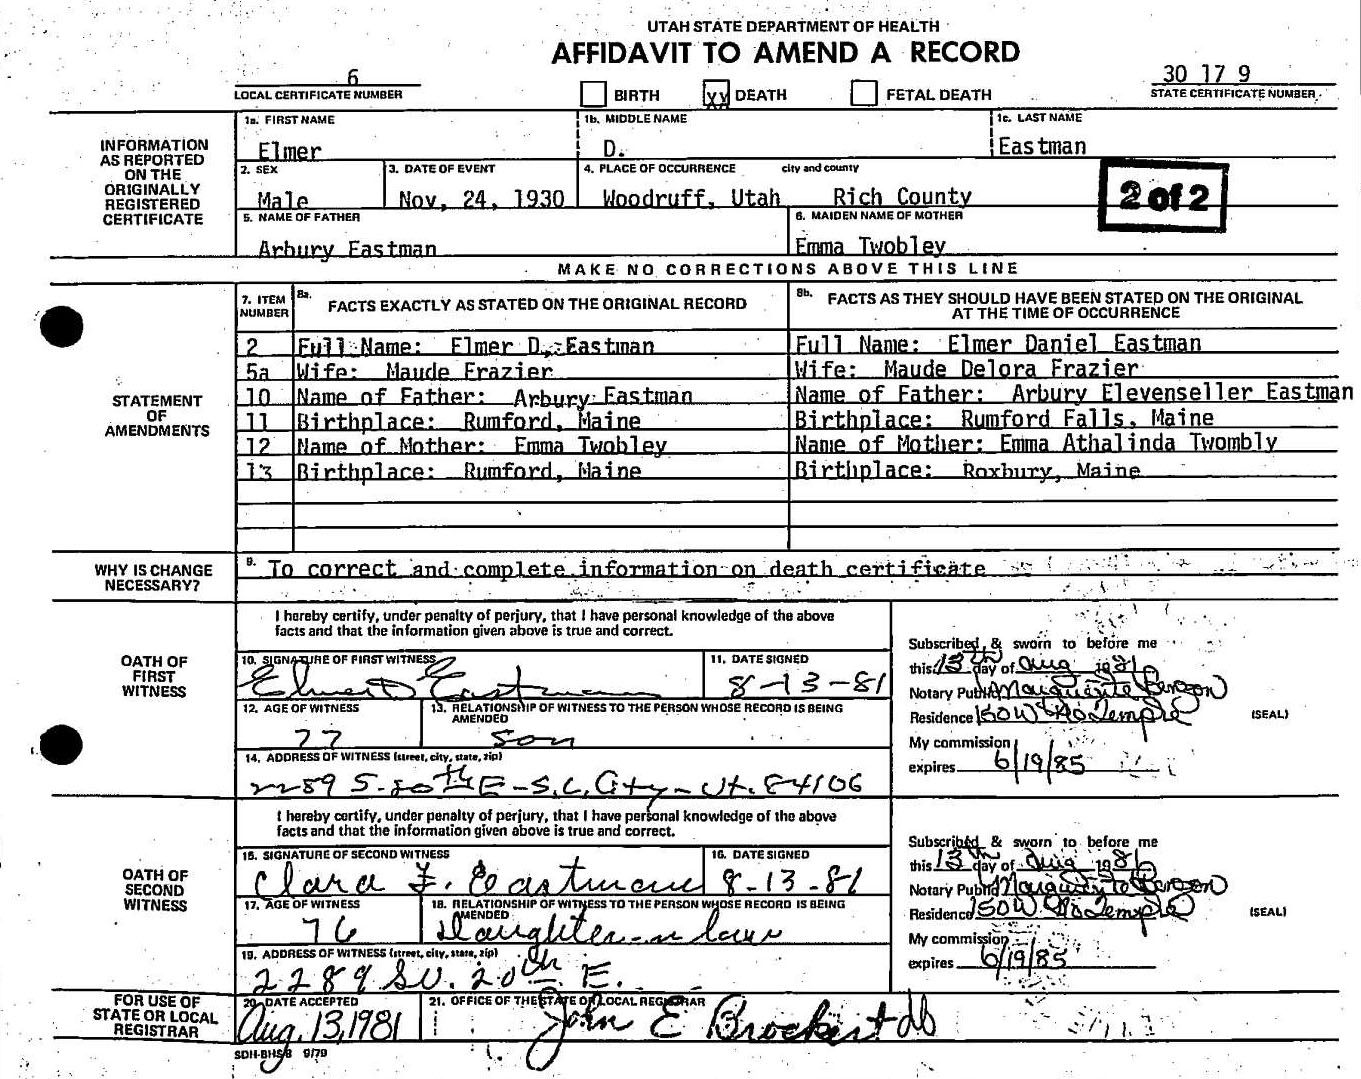 UTAH STATE DEPARTMENT OF HEALTH
AFFIDAVIT TO AMEND A RECORD
6
LOCAL CERTIFICATE NUMBER
BIRTH
XX DEATH
FETAL DEATH
30 17 9
STATE CERTIFICATE NUMBER
INFORMATION AS REPORTED ON THE ORIGINALLY REGISTERED CERTIFICATE
1a. FIRST NAME
Elmer
1b. MIDDLE NAME
D.
1c. LAST NAME
Eastman
2. SEX
Male
3. DATE OF EVENT
Nov, 24, 1930
4. PLACE OF OCCURRENCE city and county
Woodruff, Utah Rich County
2 of 2
5. NAME OF FATHER
Arbury Eastman
6. MAIDEN NAME OF MOTHER
Emma Twobley
MAKE NO CORRECTIONS ABOVE THIS LINE
STATEMENT OF AMENDMENTS
7. ITEM NUMBER
8a. FACTS EXACTLY AS STATED ON THE ORIGINAL RECORD
8b. FACTS AS THEY SHOULD HAVE BEEN STATED ON THE ORIGINAL AT THE TIME OF OCCURRENCE
2 Full Name: Elmer D. Eastman Full Name: Elmer Daniel Eastman
5a Wife: Maude Frazier Wife: Maude Delora Frazier
10 Name of Father: Arbury Eastman Name of Father: Arbury Elevenseller Eastman
11 Birthplace: Rumford, Maine Birthplace: Rumford Falls, Maine
12 Name of Mother: Emma Twobley Name of Mother: Emma Athalinda Twombly
13 Birthplace: Rumford, Maine Birthplace: Roxbury, Maine
WHY IS CHANGE NECESSARY?
9. To correct and complete information on death certificate
OATH OF FIRST WITNESS
I hereby certify, under penalty of perjury, that I have personal knowledge of the above
facts and that the information given above is true and correct.
10. SIGNATURE OF FIRST WITNESS
Elmert Eastman
11. DATE SIGNED
8-13-81
12. AGE OF WITNESS
77
13. RELATIONSHIP OF WITNESS TO THE PERSON WHOSE RECORD IS BEING AMENDED
son
14. ADDRESS OF WITNESS (street, city, state, zip)
2289 S. 20th E - S.L. City - Ut. 84106
Subscribed & sworn to before me
this 13th day of Aug 1981
Notary Public Marguerite Benson
Residence 150 W No Temple
(SEAL)
My commission
expires 6/19/85
OATH OF SECOND WITNESS
I hereby certify, under penalty of perjury, that I have personal knowledge of the above
facts and that the information given above is true and correct.
15. SIGNATURE OF SECOND WITNESS
Clara F. Eastman
16. DATE SIGNED
8-13-81
17. AGE OF WITNESS
76
18. RELATIONSHIP OF WITNESS TO THE PERSON WHOSE RECORD IS BEING AMENDED
Daughter-n law
19. ADDRESS OF WITNESS (street, city, state, zip)
2289 So. 20th E.
Subscribed & sworn to before me
this 13th day of Aug 1981
Notary Public Marguerite Benson
Residence 150 W No Temple
(SEAL)
My commission
expires 6/19/85
FOR USE OF STATE OR LOCAL REGISTRAR
20. DATE ACCEPTED
Aug. 13, 1981
21. OFFICE OF THE STATE OR LOCAL REGISTRAR
John E Brockert db
SDH-BHS 8 9/79